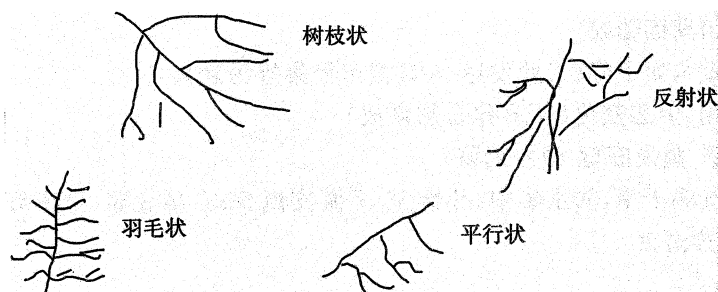 树枝状
反射状
羽毛状
平行状